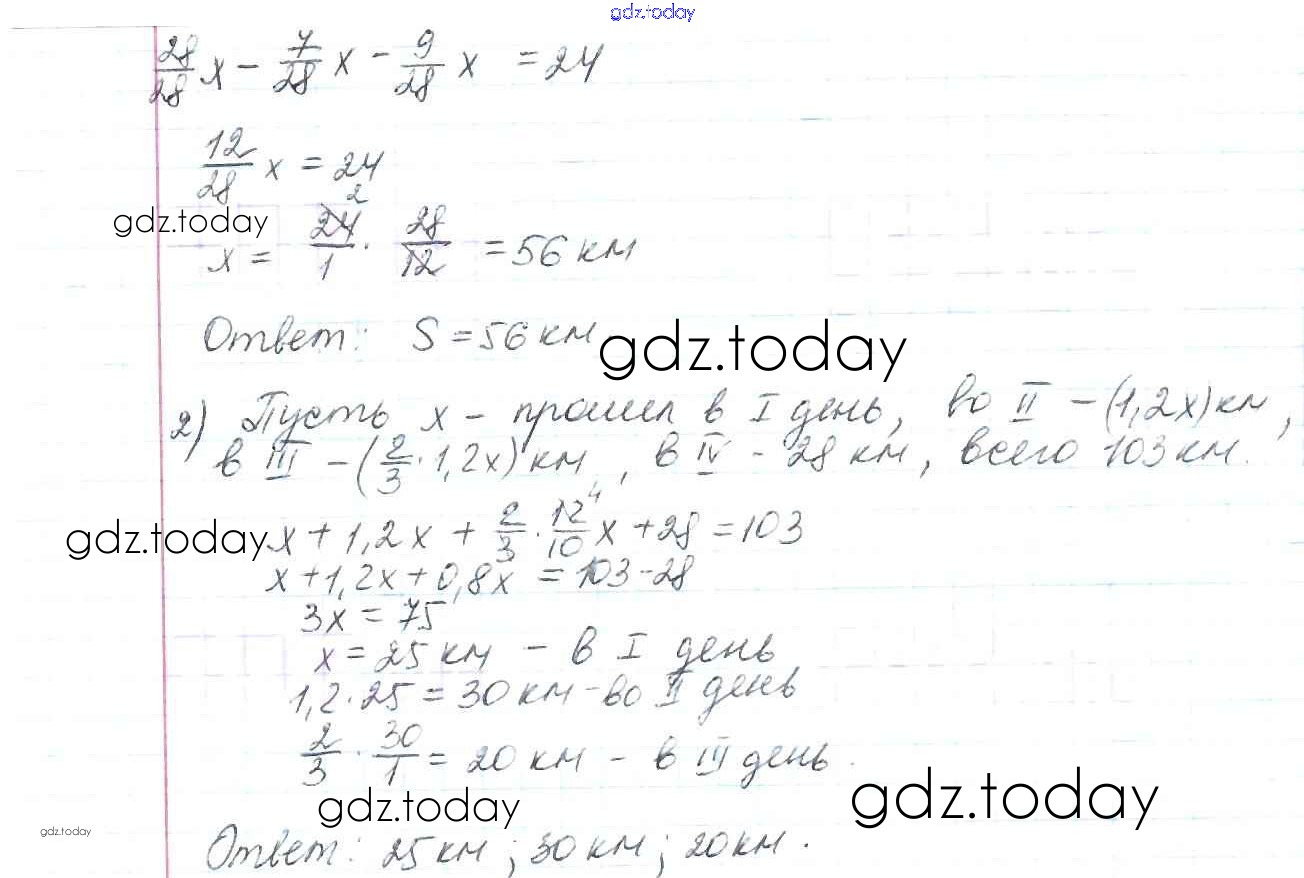 gdz.today
28/28 x - 7/28 x - 9/28 x = 24
12/28 x = 24
gdz.today
x = 24/1 · 28/12 = 56 км
2
Ответ: S = 56 км
gdz.today
2) Пусть x - прошел в I день, во II - (1,2x) км,
в III - (2/3 · 1,2x) км, в IV - 28 км, всего 103 км.
gdz.today
x + 1,2x + 2/3 · 12/10 x + 28 = 103
4
x + 1,2x + 0,8x = 103 - 28
3x = 75
x = 25 км - в I день,
1,2 · 25 = 30 км - во II день
2/3 · 30/1 = 20 км - в III день.
gdz.today
gdz.today
gdz.today
Ответ: 25 км; 30 км; 20 км.